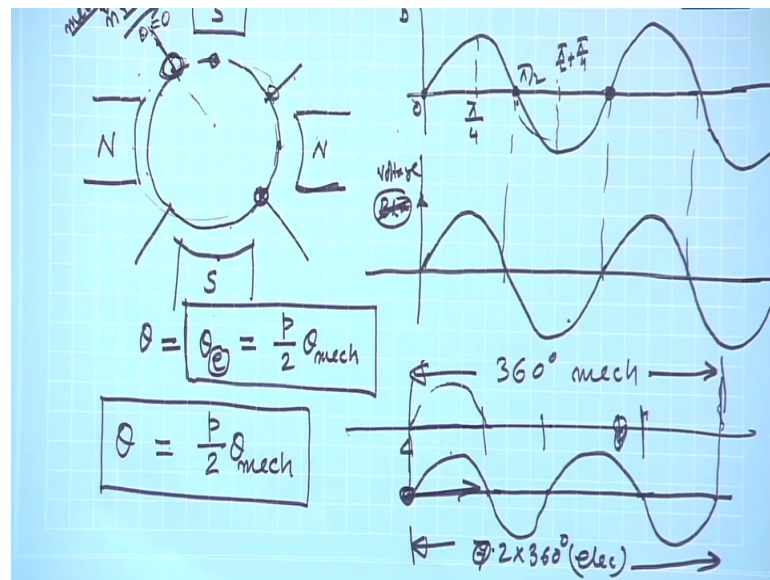 θ=0
S
N
N
S
θ = θe = P/2 θmech
θ = P/2 θmech
B
0
π/4
π/2
π/2+π/4
voltage
360° mech
2x360°(elec)